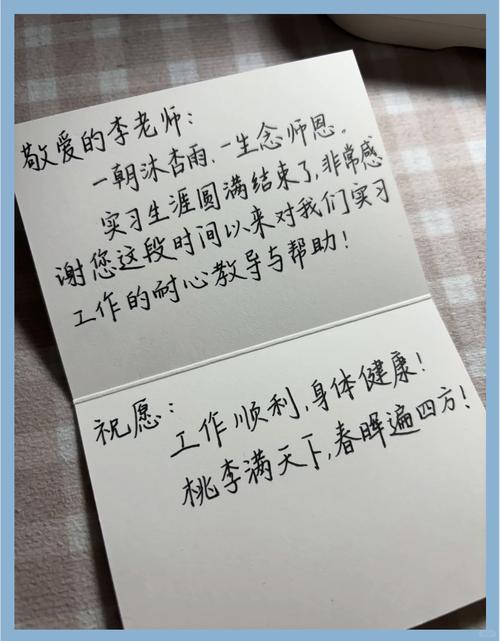 敬爱的李老师：
一朝沐杏雨，一生念师恩。
实习生涯圆满结束了，非常感
谢您这段时间以来对我们实习
工作的耐心教导与帮助！
祝愿：
工作顺利，身体健康！
桃李满天下，春晖遍四方！